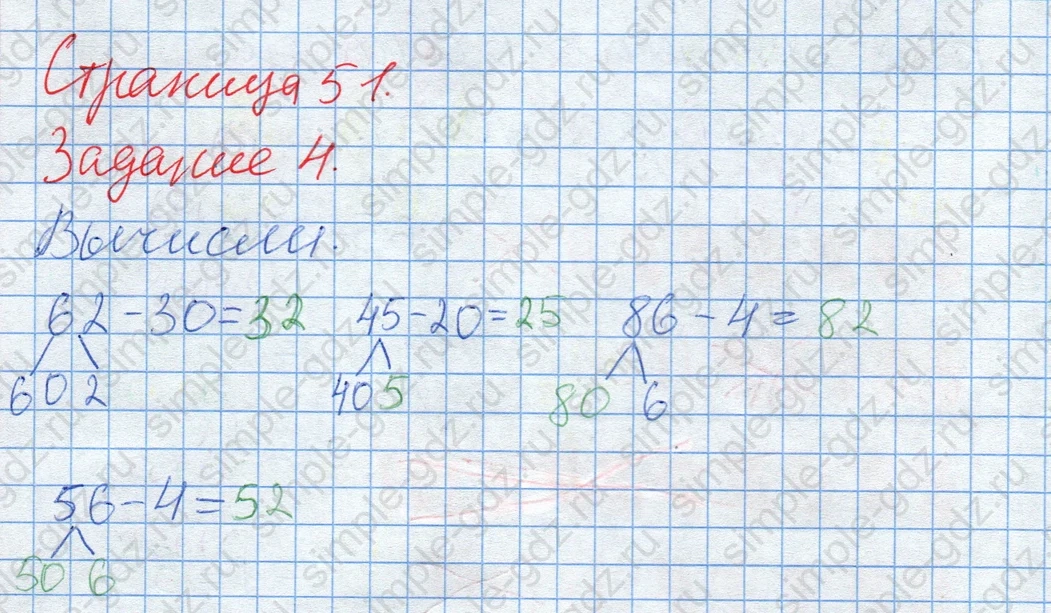 Страница 51.
Задание 4.
Вычисли.
62-30=32 45-20=25 86-4=82
60 2 40 5 80 6
56-4=52
50 6
simple-gdz.ru